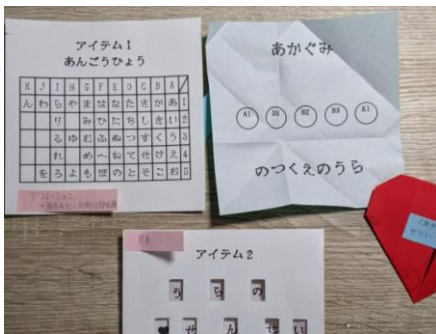 アイテム1
あんごうひょう
K J I H G F E D C B A
ん わ ら や ま は な た さ か あ 1
り み ひ に ち し き い 2
る ゆ む ふ ぬ つ す く う 3
れ め へ ね て せ け え 4
を ろ よ も ほ の と そ こ お 5
デコレーション
あかぐみ
A1 B3
のつくえのうら
アイテム2
う ら の
♥ せ ん せ い